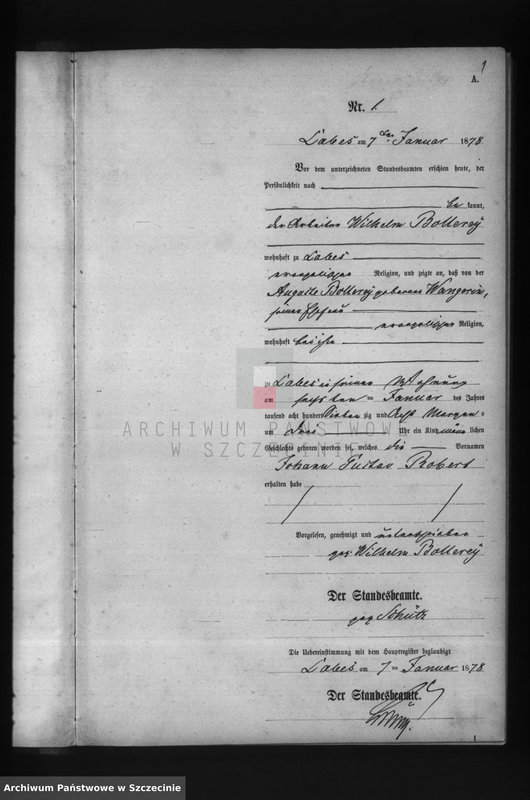 1
A.
Nr. 1.
Labes am 7ten Januar 1878
Vor dem unterzeichneten Standesbeamten erschien heute, der
Persönlichkeit nach
be kannt,
der Arbeiter Wilhelm Bollerey
wohnhaft zu Labes
evangelischer Religion, und zeigte an, daß von der
Auguste Bollerey geborene Wangerin,
seiner Ehefrau
evangelischer Religion,
wohnhaft bei ihm
zu Labes in seiner Wohnung
am sechsten Januar des Jahres
tausend acht hundert sieben zig und acht Morgens
um drei Uhr ein Kind männ lichen
Geschlechts geboren worden sei, welches die Vornamen
Johann Gustav Robert
erhalten habe
Vorgelesen, genehmigt und unterschrieben
gez Wilhelm Bollerey
Der Standesbeamte.
gez Schütz
Die Uebereinstimmung mit dem Hauptregister beglaubigt
Labes am 7ten Januar 1878.
Der Standesbeamte.
1
ARCHIWUM PAŃSTWOWE
W SZCZECINIE
Archiwum Państwowe w Szczecinie